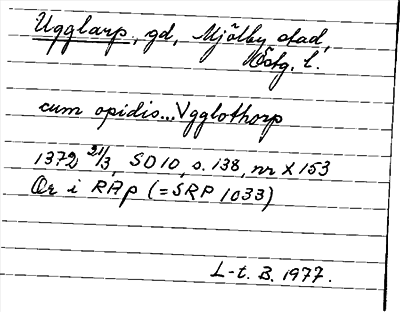 Ugglarp, gd, Mjölby stad,
Östg. l.
cum opidis...Vgglothorp
1372 21/3, SD 10, s. 138, nr X 153
Or i RAp (=SRP 1033)
L-t. B. 1977.